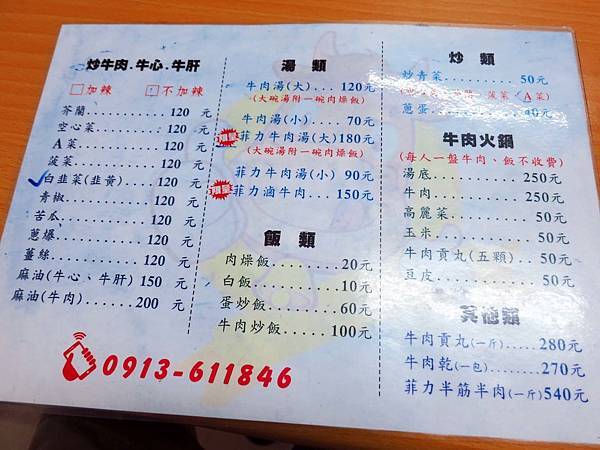 炒牛肉.牛心.牛肝
□加辣 □不加辣
芥蘭............120 元
空心菜..........120 元
A菜............120 元
菠菜............120 元
白韭菜(韭黃)....120 元
青椒............120 元
苦瓜............120 元
蔥爆............120 元
薑絲............120 元
麻油(牛心、牛肝) 150 元
麻油(牛肉)......200 元
0913-611846
湯 類
牛肉湯(大)... 120元
(大碗湯附一碗肉燥飯)
牛肉湯(小).... 70元
菲力牛肉湯(大)180元
(大碗湯附一碗肉燥飯)
菲力牛肉湯(小) 90元
菲力滷牛肉... 150元
飯 類
肉燥飯.........20元
白飯...........10元
蛋炒飯.........60元
牛肉炒飯......100元
炒 類
炒青菜..........50元
菠菜 A菜)
蔥蛋............40元
牛肉火鍋
(每人一盤牛肉、飯不收費)
湯底..........250元
牛肉..........250元
高麗菜.........50元
玉米...........50元
牛肉貢丸(五顆)..50元
豆皮...........50元
其他類
牛肉貢丸(一斤).....280元
牛肉乾(一包).......270元
菲力半筋半肉(一斤)540元